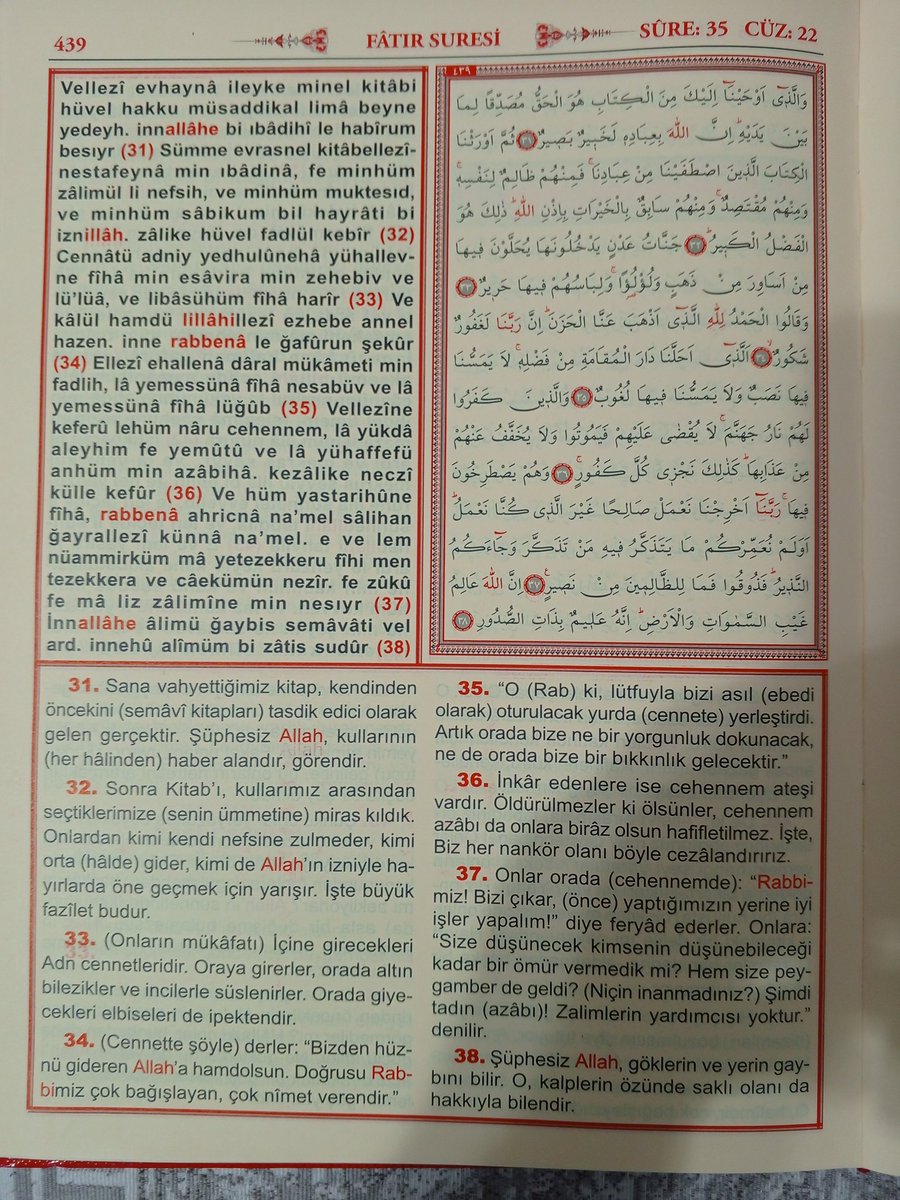 439
FÂTIR SURESİ
SÛRE: 35 CÜZ: 22
Vellezî evhaynâ ileyke minel kitâbi
hüvel hakku müsaddikal limâ beyne
yedeyh. innallâhe bi ıbâdihî le habîrum
besıyr (31) Sümme evrasnel kitâbellezî-
nestafeynâ min ıbâdinâ, fe minhüm
zâlimül li nefsih, ve minhüm muktesıd,
ve minhüm sâbikum bil hayrâti bi
iznillâh. zâlike hüvel fadlül kebîr (32)
Cennâtü adniy yedhulûnehâ yühallev-
ne fîhâ min esâvira min zehebiv ve
lü’lüâ, ve libâsühüm fîhâ harîr (33) Ve
kâlül hamdü lillâhillezî ezhebe annel
hazen. inne rabbenâ le ğafûrun şekûr
(34) Ellezî ehallenâ dâral mükâmeti min
fadlih, lâ yemessünâ fîhâ nesabüv ve lâ
yemessünâ fîhâ lüğûb (35) Vellezîne
keferû lehüm nâru cehennem, lâ yükdâ
aleyhim fe yemûtû ve lâ yühaffefü
anhüm min azâbihâ. kezâlike neczî
külle kefûr (36) Ve hüm yastarihûne
fîhâ, rabbenâ ahricnâ na’mel sâlihan
ğayrallezî künnâ na’mel. e ve lem
nüammirküm mâ yetezekkeru fîhi men
tezekkera ve câekümün nezîr. fe zûkû
fe mâ liz zâlimîne min nesıyr (37)
İnnallâhe âlimü ğaybis semâvâti vel
ard. innehû alîmüm bi zâtis sudûr (38)
٤٣٩
وَالَّذٖٓى اَوْحَيْنَٓا اِلَيْكَ مِنَ الْكِتَابِ هُوَ الْحَقُّ مُصَدِّقًا لِمَا
بَيْنَ يَدَيْهِؕ اِنَّ اللّٰهَ بِعِبَادِهٖ لَخَبٖيرٌ بَصٖيرٌ ﴿٣١﴾ ثُمَّ اَوْرَثْنَا
الْكِتَابَ الَّذٖينَ اصْطَفَيْنَا مِنْ عِبَادِنَاۚ فَمِنْهُمْ ظَالِمٌ لِنَفْسِهٖۚ
وَمِنْهُمْ مُقْتَصِدٌۚ وَمِنْهُمْ سَابِقٌ بِالْخَيْرَاتِ بِاِذْنِ اللّٰهِؕ ذٰلِكَ هُوَ
الْفَضْلُ الْكَبٖيرُؕ ﴿٣٢﴾ جَنَّاتُ عَدْنٍ يَدْخُلُونَهَا يُحَلَّوْنَ فٖيهَا
مِنْ اَسَاوِرَ مِنْ ذَهَبٍ وَلُؤْلُؤًاۚ وَلِبَاسُهُمْ فٖيهَا حَرٖيرٌ ﴿٣٣﴾
وَقَالُوا الْحَمْدُ لِلّٰهِ الَّذٖٓى اَذْهَبَ عَنَّا الْحَزَنَؕ اِنَّ رَبَّنَا لَغَفُورٌ
شَكُورٌۙ ﴿٣٤﴾ اَلَّذٖٓى اَحَلَّنَا دَارَ الْمُقَامَةِ مِنْ فَضْلِهٖۚ لَا يَمَسُّنَا
فٖيهَا نَصَبٌ وَلَا يَمَسُّنَا فٖيهَا لُغُوبٌ ﴿٣٥﴾ وَالَّذٖينَ كَفَرُوا
لَهُمْ نَارُ جَهَنَّمَۚ لَا يُقْضٰى عَلَيْهِمْ فَيَمُوتُوا وَلَا يُخَفَّفُ عَنْهُمْ
مِنْ عَذَابِهَاؕ كَذٰلِكَ نَجْزٖى كُلَّ كَفُورٍۚ ﴿٣٦﴾ وَهُمْ يَصْطَرِخُونَ
فٖيهَاۚ رَبَّنَٓا اَخْرِجْنَا نَعْمَلْ صَالِحًا غَيْرَ الَّذٖى كُنَّا نَعْمَلُؕ
اَوَلَمْ نُعَمِّرْكُمْ مَا يَتَذَكَّرُ فٖيهِ مَنْ تَذَكَّرَ وَجَٓاءَكُمُ
النَّذٖيرُؕ فَذُوقُوا فَمَا لِلظَّالِمٖينَ مِنْ نَصٖيرٍۚ ﴿٣٧﴾ اِنَّ اللّٰهَ عَالِمُ
غَيْبِ السَّمٰوَاتِ وَالْاَرْضِؕ اِنَّهُ عَلٖيمٌ بِذَاتِ الصُّدُورِ ﴿٣٨﴾
31. Sana vahyettiğimiz kitap, kendinden
öncekini (semâvî kitapları) tasdik edici olarak
gelen gerçektir. Şüphesiz Allah, kullarının
(her hâlinden) haber alandır, görendir.
32. Sonra Kitab’ı, kullarımız arasından
seçtiklerimize (senin ümmetine) miras kıldık.
Onlardan kimi kendi nefsine zulmeder, kimi
orta (hâlde) gider, kimi de Allah’ın izniyle ha-
yırlarda öne geçmek için yarışır. İşte büyük
fazîlet budur.
33. (Onların mükâfatı) İçine girecekleri
Adn cennetleridir. Oraya girerler, orada altın
bilezikler ve incilerle süslenirler. Orada giye-
cekleri elbiseleri de ipektendir.
34. (Cennette şöyle) derler: “Bizden hüz-
nü gideren Allah’a hamdolsun. Doğrusu Rab-
bimiz çok bağışlayan, çok nîmet verendir.”
35. “O (Rab) ki, lütfuyla bizi asıl (ebedi
olarak) oturulacak yurda (cennete) yerleştirdi.
Artık orada bize ne bir yorgunluk dokunacak,
ne de orada bize bir bıkkınlık gelecektir.”
36. İnkâr edenlere ise cehennem ateşi
vardır. Öldürülmezler ki ölsünler, cehennem
azâbı da onlara birâz olsun hafifletilmez. İşte,
Biz her nankör olanı böyle cezâlandırırız.
37. Onlar orada (cehennemde): “Rabbi-
miz! Bizi çıkar, (önce) yaptığımızın yerine iyi
işler yapalım!” diye feryâd ederler. Onlara:
“Size düşünecek kimsenin düşünebileceği
kadar bir ömür vermedik mi? Hem size pey-
gamber de geldi? (Niçin inanmadınız?) Şimdi
tadın (azâbı)! Zalimlerin yardımcısı yoktur.”
denilir.
38. Şüphesiz Allah, göklerin ve yerin gay-
bını bilir. O, kalplerin özünde saklı olanı da
hakkıyla bilendir.